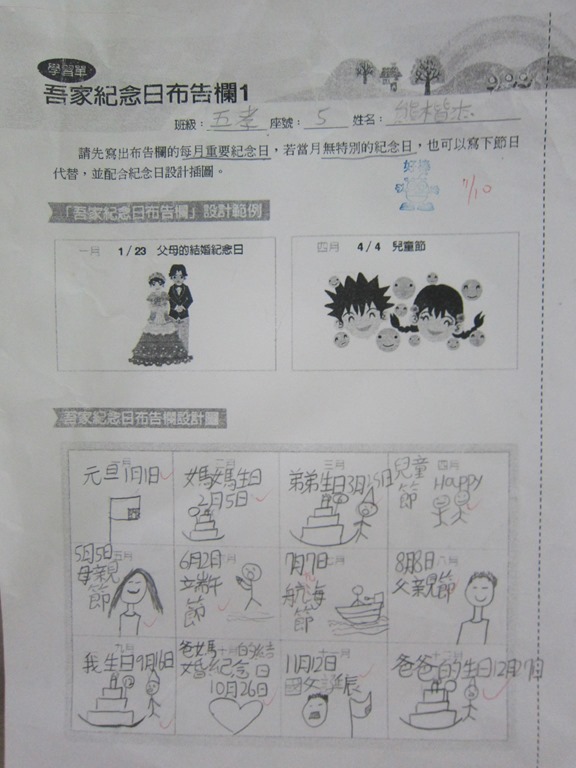 學習單
吾家紀念日布告欄1
班級：五孝 座號：5 姓名：熊楷杰
請先寫出布告欄的每月重要紀念日，若當月無特別的紀念日，也可以寫下節日
代替，並配合紀念日設計插圖。
7/10
「吾家紀念日布告欄」設計範例
一月 1/23 父母的結婚紀念日
四月 4/4 兒童節
吾家紀念日布告欄設計圖
一月
元旦1月1日
二月
媽媽生日
2月5日
三月
弟弟生日3月25日
四月
兒童
節
Happy
五月
5月5日
母親
節
六月
6月2日
端午
節
七月
7月7日
航海
節
八月
8月8日
父親節
九月
我生日9月16日
十月
爸媽的結
婚紀念日
10月26日
十一月
11月12日
國父誕辰
十二月
爸爸的生日12月27日